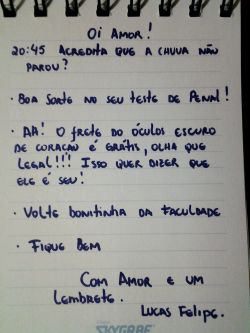 Oi Amor!
20:45 Acredita que a chuva não
parou?
· Boa sorte no seu teste de Penal!
· Aa! O frete do óculos escuro
de coração é grátis, olha que
legal!!! Isso quer dizer que
ele é seu!
· Volte bonitinha da Faculdade
· Fique Bem
Com Amor e um
Lembrete.
Lucas Felipe.